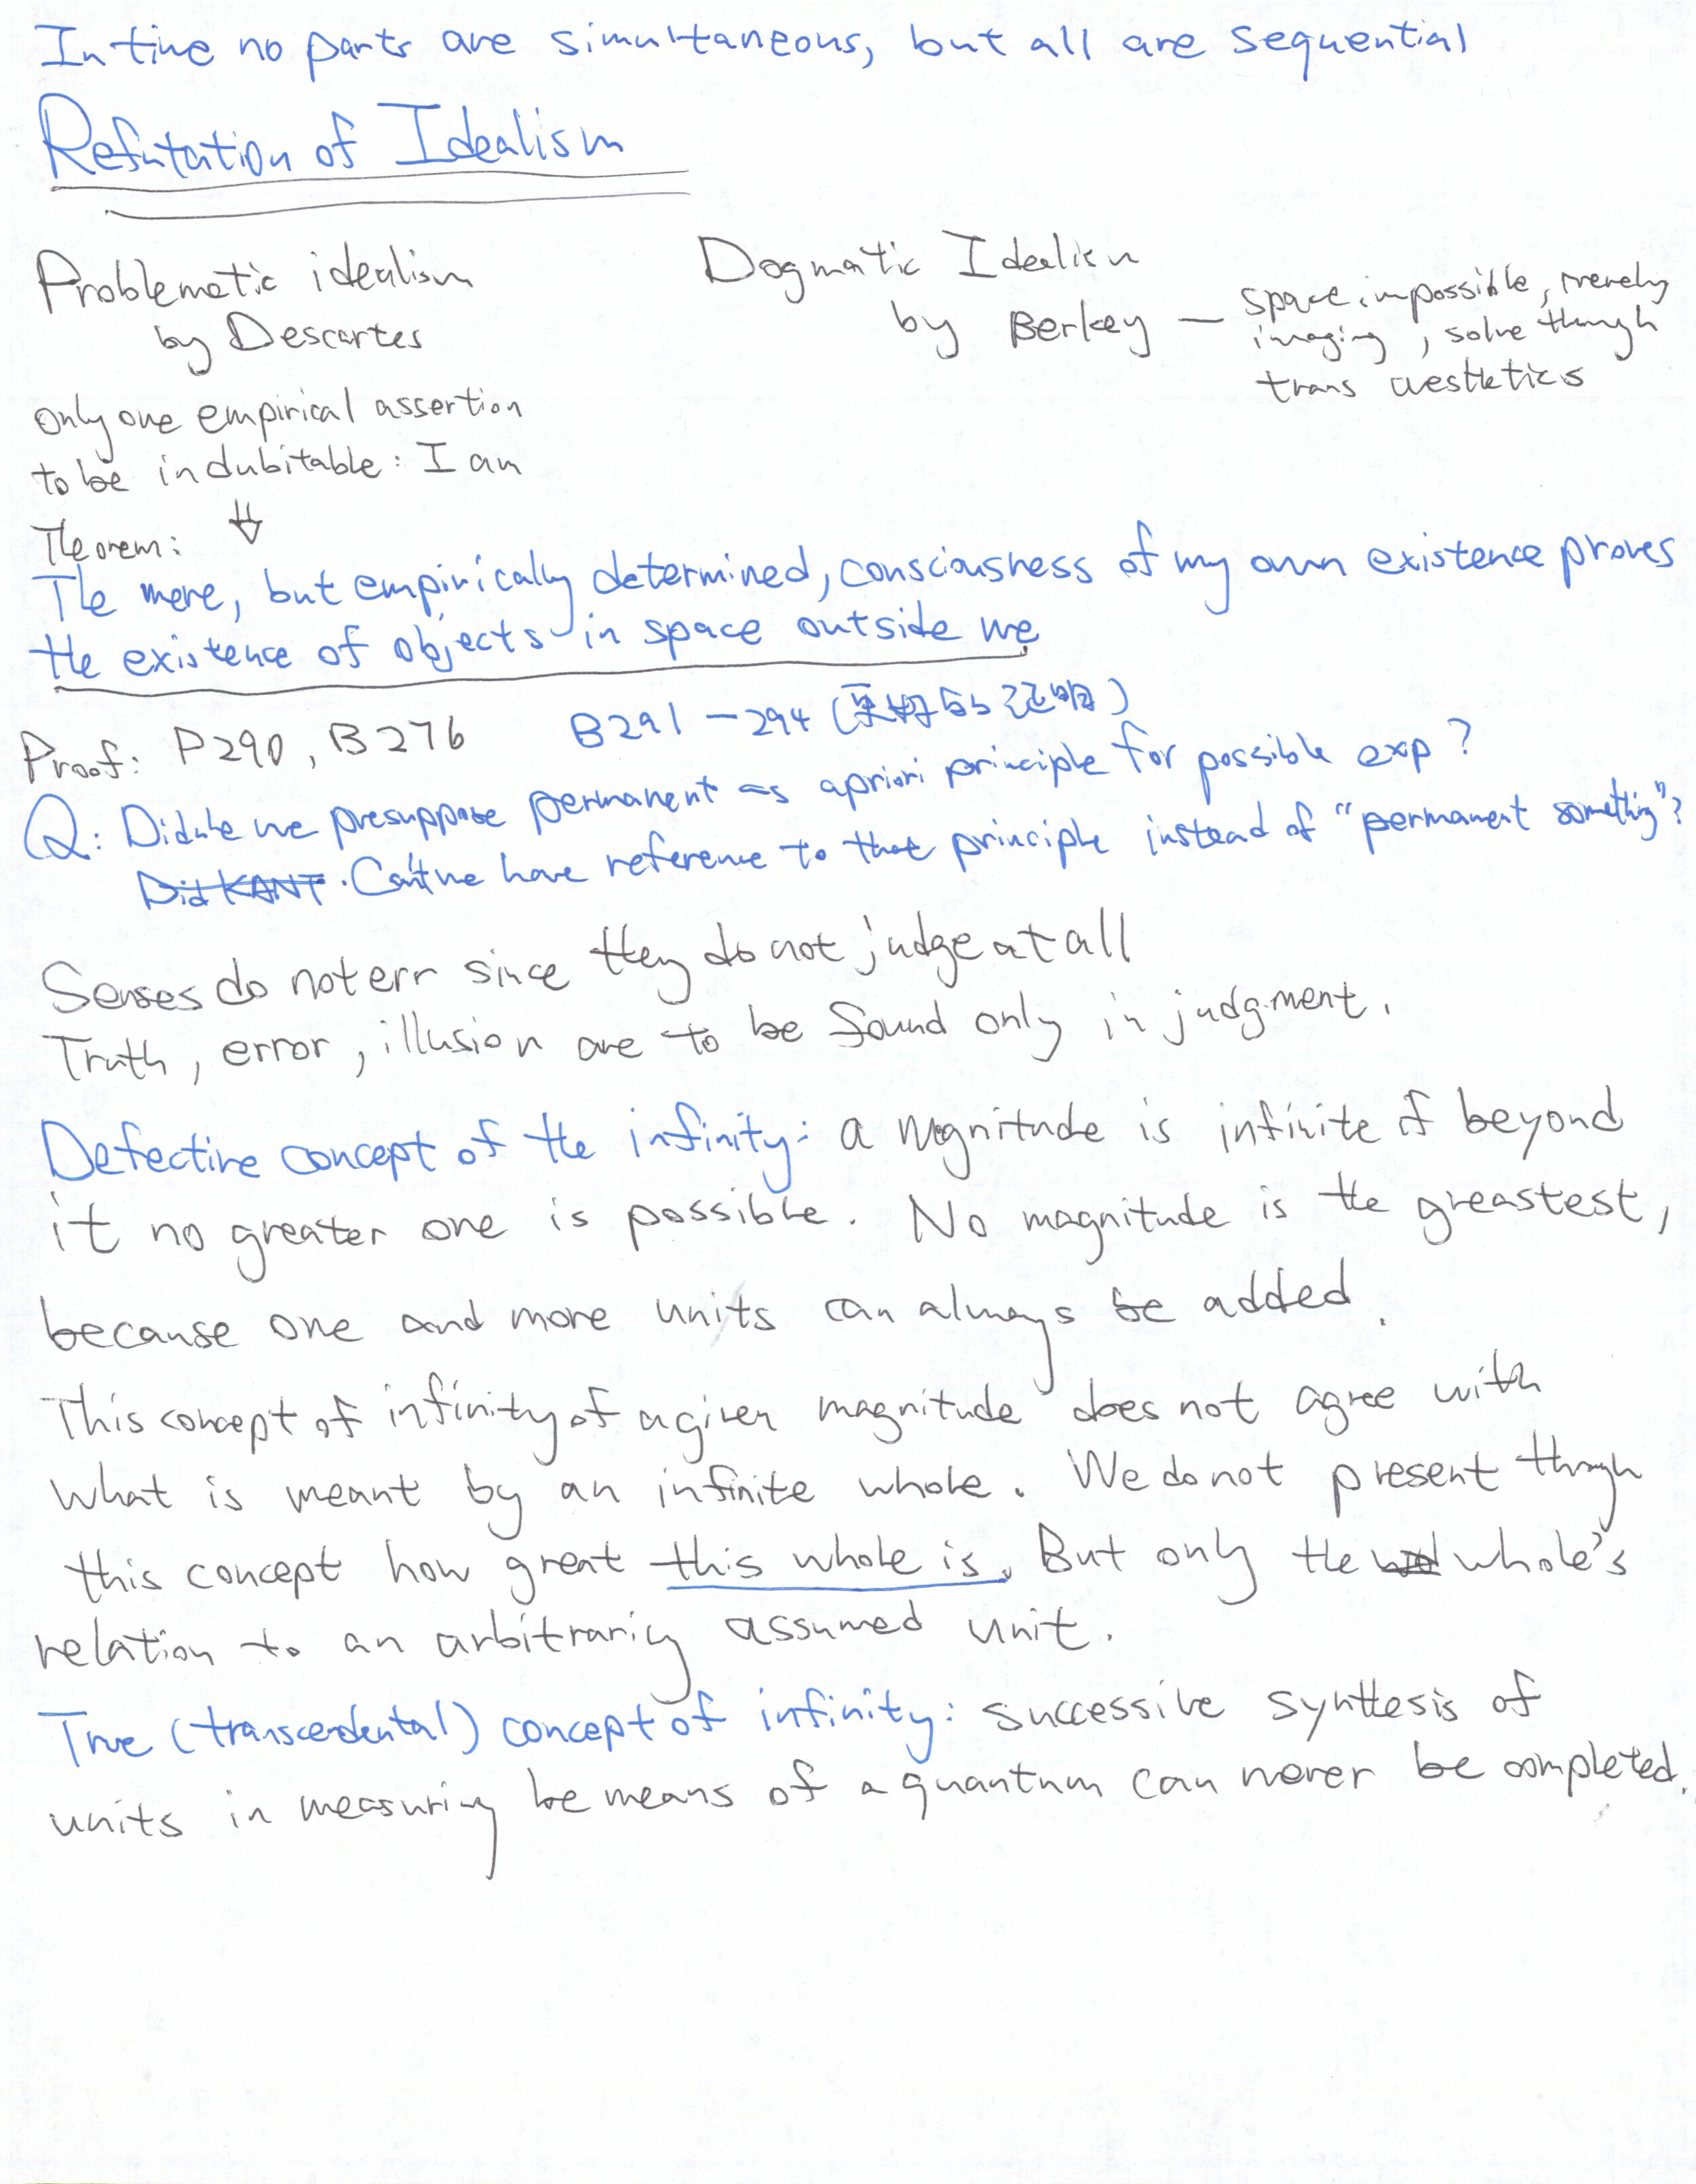 In time no parts are simultaneous, but all are sequential
Refutation of Idealism
Problematic idealism
by Descartes
only one empirical assertion
to be indubitable: I am
Dogmatic Idealism
by Berkey — space impossible, merely
imaging, solve though
trans aesthetics
Theorem: ⇓
The mere, but empirically determined, consciousness of my own existence proves
the existence of objects in space outside me
Proof: P290, B276 B291-294 (更好的证明)
Q: Didn't we presuppose permanent as apriori principle for possible exp?
Did KANT. Can't we have reference to that principle instead of "permanent something"?
Senses do not err since they do not judge at all
Truth, error, illusion are to be found only in judgment.
Defective concept of the infinity: a magnitude is infinite if beyond
it no greater one is possible. No magnitude is the greastest,
because one and more units can always be added.
This concept of infinity of a given magnitude does not agree with
what is meant by an infinite whole. We do not present though
this concept how great this whole is. But only the whole's
relation to an arbitrariy assumed unit.
True (transcendental) concept of infinity: successive synthesis of
units in measuring be means of a quantum can never be completed.